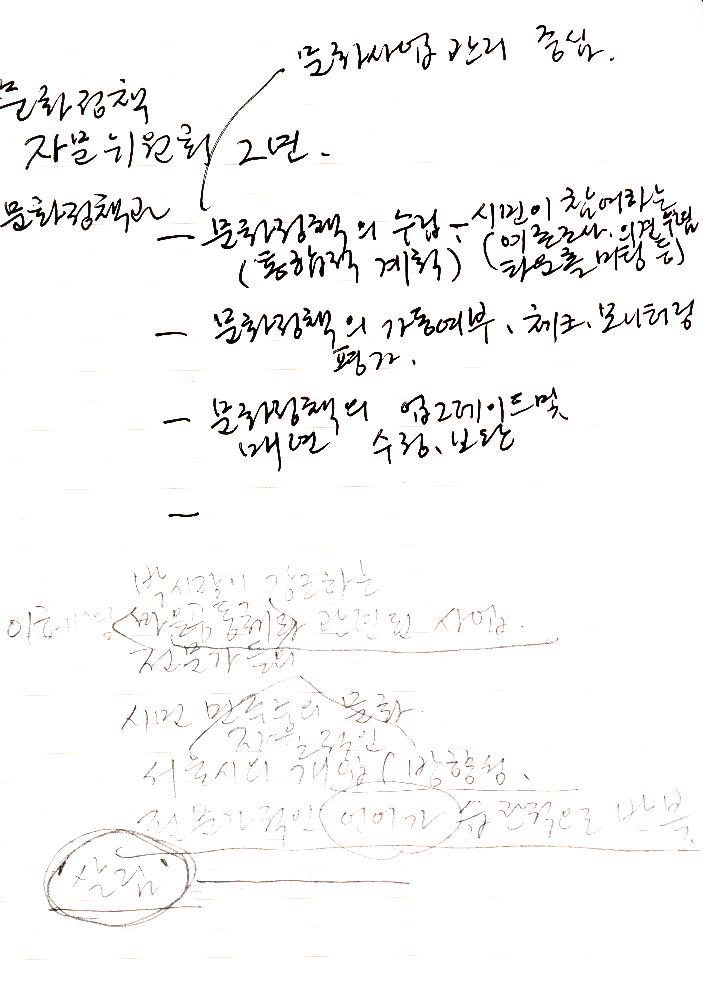 문화사업관리 중심.
문화정책
자문위원회 2면.
문화정책과
- 문화정책의 수립 - 시민이 참여하는
(통합적 계획) (여론조사, 의견수렴
타운홀미팅 등)
- 문화정책의 가동여부, 체크, 모니터링
평가.
- 문화정책의 업그레이드 및
매년 수정, 보완
-
박시장이 강조하는
마을공동체와 관련된 사업.
전문가들의
시민 만족 문화
자율적인
서울시의 개입 방향성.
전문가적인 언어가 습관적으로 반복
살림